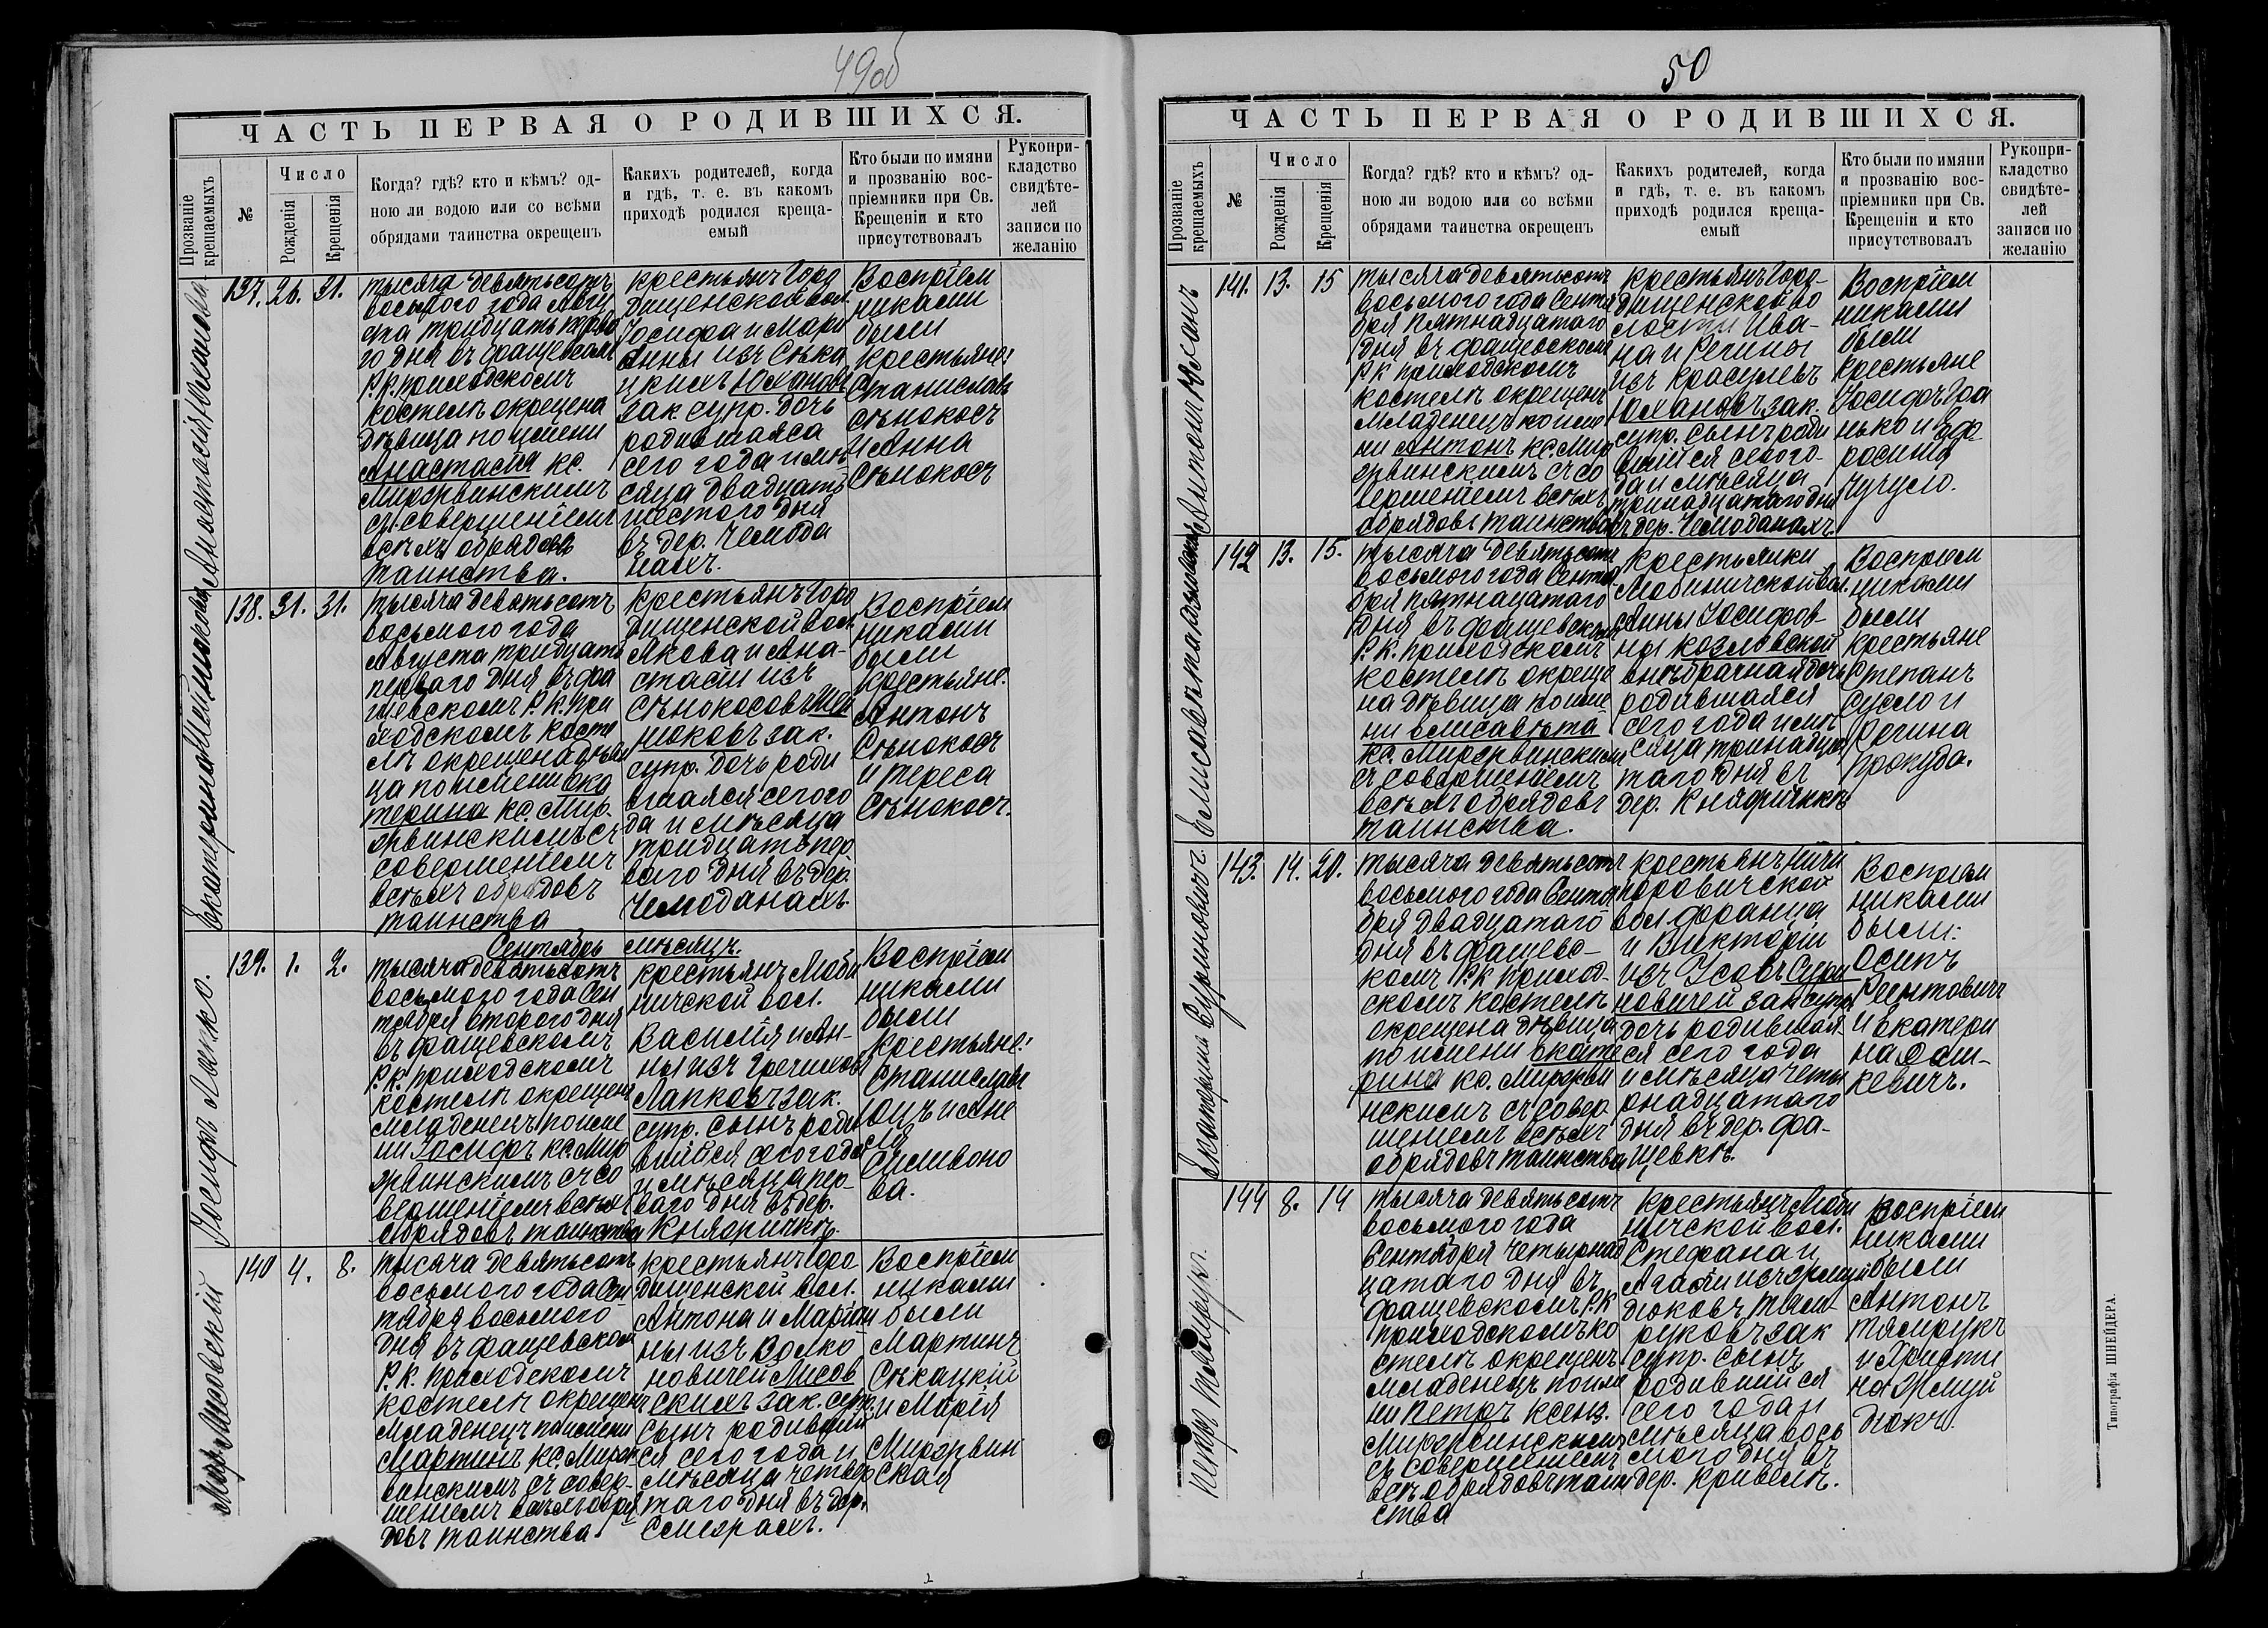 49об
ЧАСТЬ ПЕРВАЯ О РОДИВШИХСЯ.
Прозваніе крещаемыхъ
№
Число
Рожденія
Крещенія
Когда? гдѣ? кто и кѣмъ? од-
ною ли водою или со всѣми
обрядами таинства окрещенъ
Какихъ родителей, когда
и гдѣ, т. е. въ какомъ
приходѣ родился креща-
емый
Кто были по имяни
и прозванію вос-
пріемники при Св.
Крещеніи и кто
присутствовалъ
Рукопри-
кладство
свидѣте-
лей
записи по
желанію
Анастасія Юхановъ
137. 26. 31.
тысяча девятьсотъ
восьмого года Авгу
ста тридцать перва
го дня въ фащевскомъ
Р.К. приходскомъ
костелѣ окрещена
дѣвица по имени
Анастасія кс.
Мирзвинскимъ
съ совершеніемъ
всѣхъ обрядовъ
таинства.
крестьянъ Горо
дищенской вол.
Іосифа и Мары
анны изъ Сѣка
цкихъ Юхановъ
зак. супр. дочь
родившаяся
сего года и мѣ
сяца двадцать
шестого дня
въ дер. Чемода
нахъ.
Воспріем
никами
были
крестьяне:
Станиславъ
Сѣнокосъ
и Анна
Сѣнокосъ
Екатерина
138. 31. 31.
тысяча девятьсотъ
восьмого года
Августа тридцать
перваго дня въ фа
щевскомъ Р.К. при
ходскомъ косте
лѣ окрещена дѣви
ца по имени Ека
терина кс. Мир.
звинскимъ съ
совершеніемъ
всѣхъ обрядовъ
таинства
крестьянъ Горо
дищенской вол.
Якова и Ана-
стасіи изъ
Сѣнокосовъ
зак.
супр. дочь роди
вшаяся сего го
да и мѣсяца
тридцать пер
ваго дня въ дер.
Чемоданахъ.
Воспріем
никами
были
крестьяне:
Антонъ
Сѣнокосъ
и Тереса
Сѣнокосъ.
Сентябрь мѣсяцъ.
Іосифъ Лапко.
139. 1. 2.
тысяча девятьсотъ
восьмого года Сен
тября второго дня
въ фащевскомъ
Р.К. приходскомъ
костелѣ окрещенъ
младенецъ по име
ни Іосифъ кс. Мир
звинскимъ съ со
вершеніемъ всѣхъ
обрядовъ таинства
крестьянъ Моги
ничской вол.
Василія и Ан-
ны изъ Гречиховъ
Лапковъ зак.
супр. сынъ роди
вшійся сего года
и мѣсяца пер-
ваго дня въ дер.
Княжичкѣ.
Воспріем
никами
были
крестьяне:
Станиславъ
Юцъ и Ане
ля
Силивоно
ва.
Лисовскій
140 4. 8.
тысяча девятьсотъ
восьмого года Сен
тября восьмого
дня въ фащевскомъ
Р.К. приходскомъ
костелѣ окрещенъ
младенецъ по имени
Мартинъ кс. Мирз
винскимъ съ совер-
шеніемъ всѣхъ обря
довъ таинства
крестьянъ Горо
дищенской вол.
Антона и Маріан
ны изъ Волко
новичей Лисов
скихъ зак. супр.
сынъ родивший
ся сего года и
мѣсяца четвер
таго дня въ дер.
Воспріем
никами
были
Мартинъ
Сѣкацкій
и Марія
Мирзвин
ская
50
ЧАСТЬ ПЕРВАЯ О РОДИВШИХСЯ.
Прозваніе крещаемыхъ
№
Число
Рожденія
Крещенія
Когда? гдѣ? кто и кѣмъ? од-
ною ли водою или со всѣми
обрядами таинства окрещенъ
Какихъ родителей, когда
и гдѣ, т. е. въ какомъ
приходѣ родился креща-
емый
Кто были по имяни
и прозванію вос-
пріемники при Св.
Крещеніи и кто
присутствовалъ
Рукопри-
кладство
свидѣте-
лей
записи по
желанію
Антонъ Юханъ
141. 13. 15
тысяча девятьсотъ
восьмого года Сентя
бря пятнадцатаго
дня въ фащевскомъ
Р.К приходскомъ
костелѣ окрещенъ
младенецъ по име
ни Антонъ кс. Мир
звинскимъ съ со
вершеніемъ всѣхъ
обрядовъ таинства
крестьянъ Горо-
дищенской во
лости Ива-
на и Регины
изъ Красулевъ
Юхановъ зак.
супр. сынъ роди
вшійся сего го-
да и мѣсяца
тринадцатаго дня
въ дер. Чемоданахъ.
Воспріем
никами
были
крестьяне
Іосифъ Гра
нько и Еф
росинія
Чучуло.
Елисавета
142 13. 15.
тысяча девятьсотъ
восьмого года Сентя
бря пятнацатаго
дня въ фащевскомъ
Р.К. приходскомъ
костелѣ окреще
на дѣвица по име
ни Елисавѣта
кс. Мирзвинскимъ
съ совершеніемъ
всѣхъ обрядовъ
таинства.
крестьянки
Могиничской вол.
Анны Іосифов-
ны Козловской
внѣбрачная дочь
родившаяся
сего года и мѣ
сяца тринадца
таго дня въ
дер. Княжичкѣ
Воспріем
никами
были
крестьяне
Степанъ
Сусло и
Регина
Прокуда.
Екатерина Суриновичъ
143. 14. 20.
тысяча девятьсотъ
восьмого года Сентя
бря двадцатаго
дня въ фащевс-
комъ Р.К приход-
скомъ костелѣ
окрещена дѣвица
по имени Екате
рина кс. Мирзви
нскимъ съ совер-
шеніемъ всѣхъ
обрядовъ таинства
крестьянъ Ничи
поровичской
вол. Франца
и Викторіи
изъ Усовъ Сури
новичей зак супр
дочь родившая-
ся сего года
и мѣсяца четы
рнадцатаго
дня въ дер. Фа-
щевкѣ.
Воспріем
никами
были:
Осипъ
Реутовичъ
и Екатери
на Даш-
кевичъ.
Петръ Тямрукъ.
144 8. 14
тысяча девятьсотъ
восьмого года
Сентября четырнад
цатаго дня въ
фащевскомъ Р.К
приходскомъ ко
стелѣ окрещенъ
младенецъ по име
ни Петръ ксенз.
Мирзвинскимъ
съ совершеніемъ
всѣ обрядовъ таин
ства
крестьянъ Моги
ничской вол.
Стефана и
Агаѳіи изъ Жмуй
дюковъ Тям-
руковъ зак
супр. сынъ
родившийся
сего года и
мѣсяца вось
мого дня въ
дер. Кривелѣ.
Воспріем
никами
были
Антонъ
Тямрукъ
и Христи
на Жмуй
дюкъ.
Типографія ШНЕЙДЕРА.